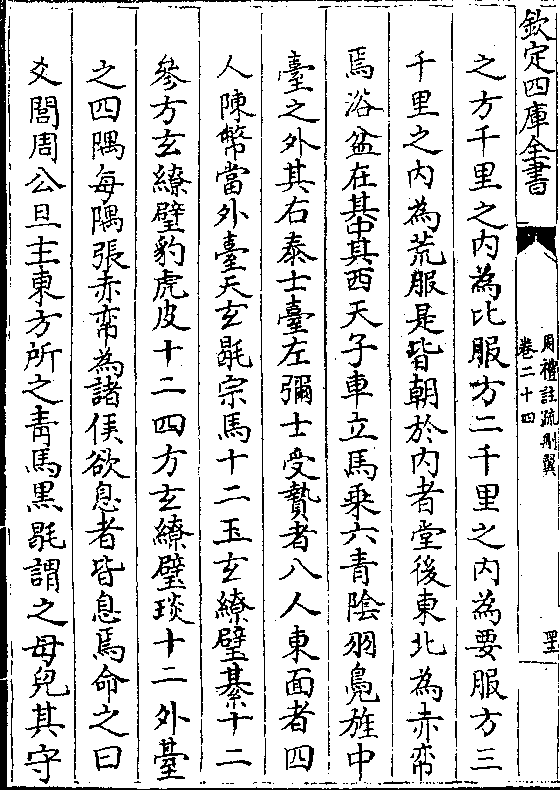 欽定四庫全書
周禮註疏刪翼
卷二十四
之方千里之內為比服方二千里之內為要服方三
千里之內為荒服是皆朝於內者堂後東北為赤帟
焉浴盆在其中其西天子車立馬乘六青陰羽鳧旌中
臺之外其右泰士臺左彌士受贄者八人東面者四
人陳幣當外臺天玄㲠宗馬十二玉玄繚璧綦十二
參方玄繚璧豹虎皮十二四方玄繚璧琰十二外臺
之四隅每隅張赤帟為諸侯欲息者皆息焉命之曰
爻閭周公旦主東方所之青馬黑㲠謂之母兒其守